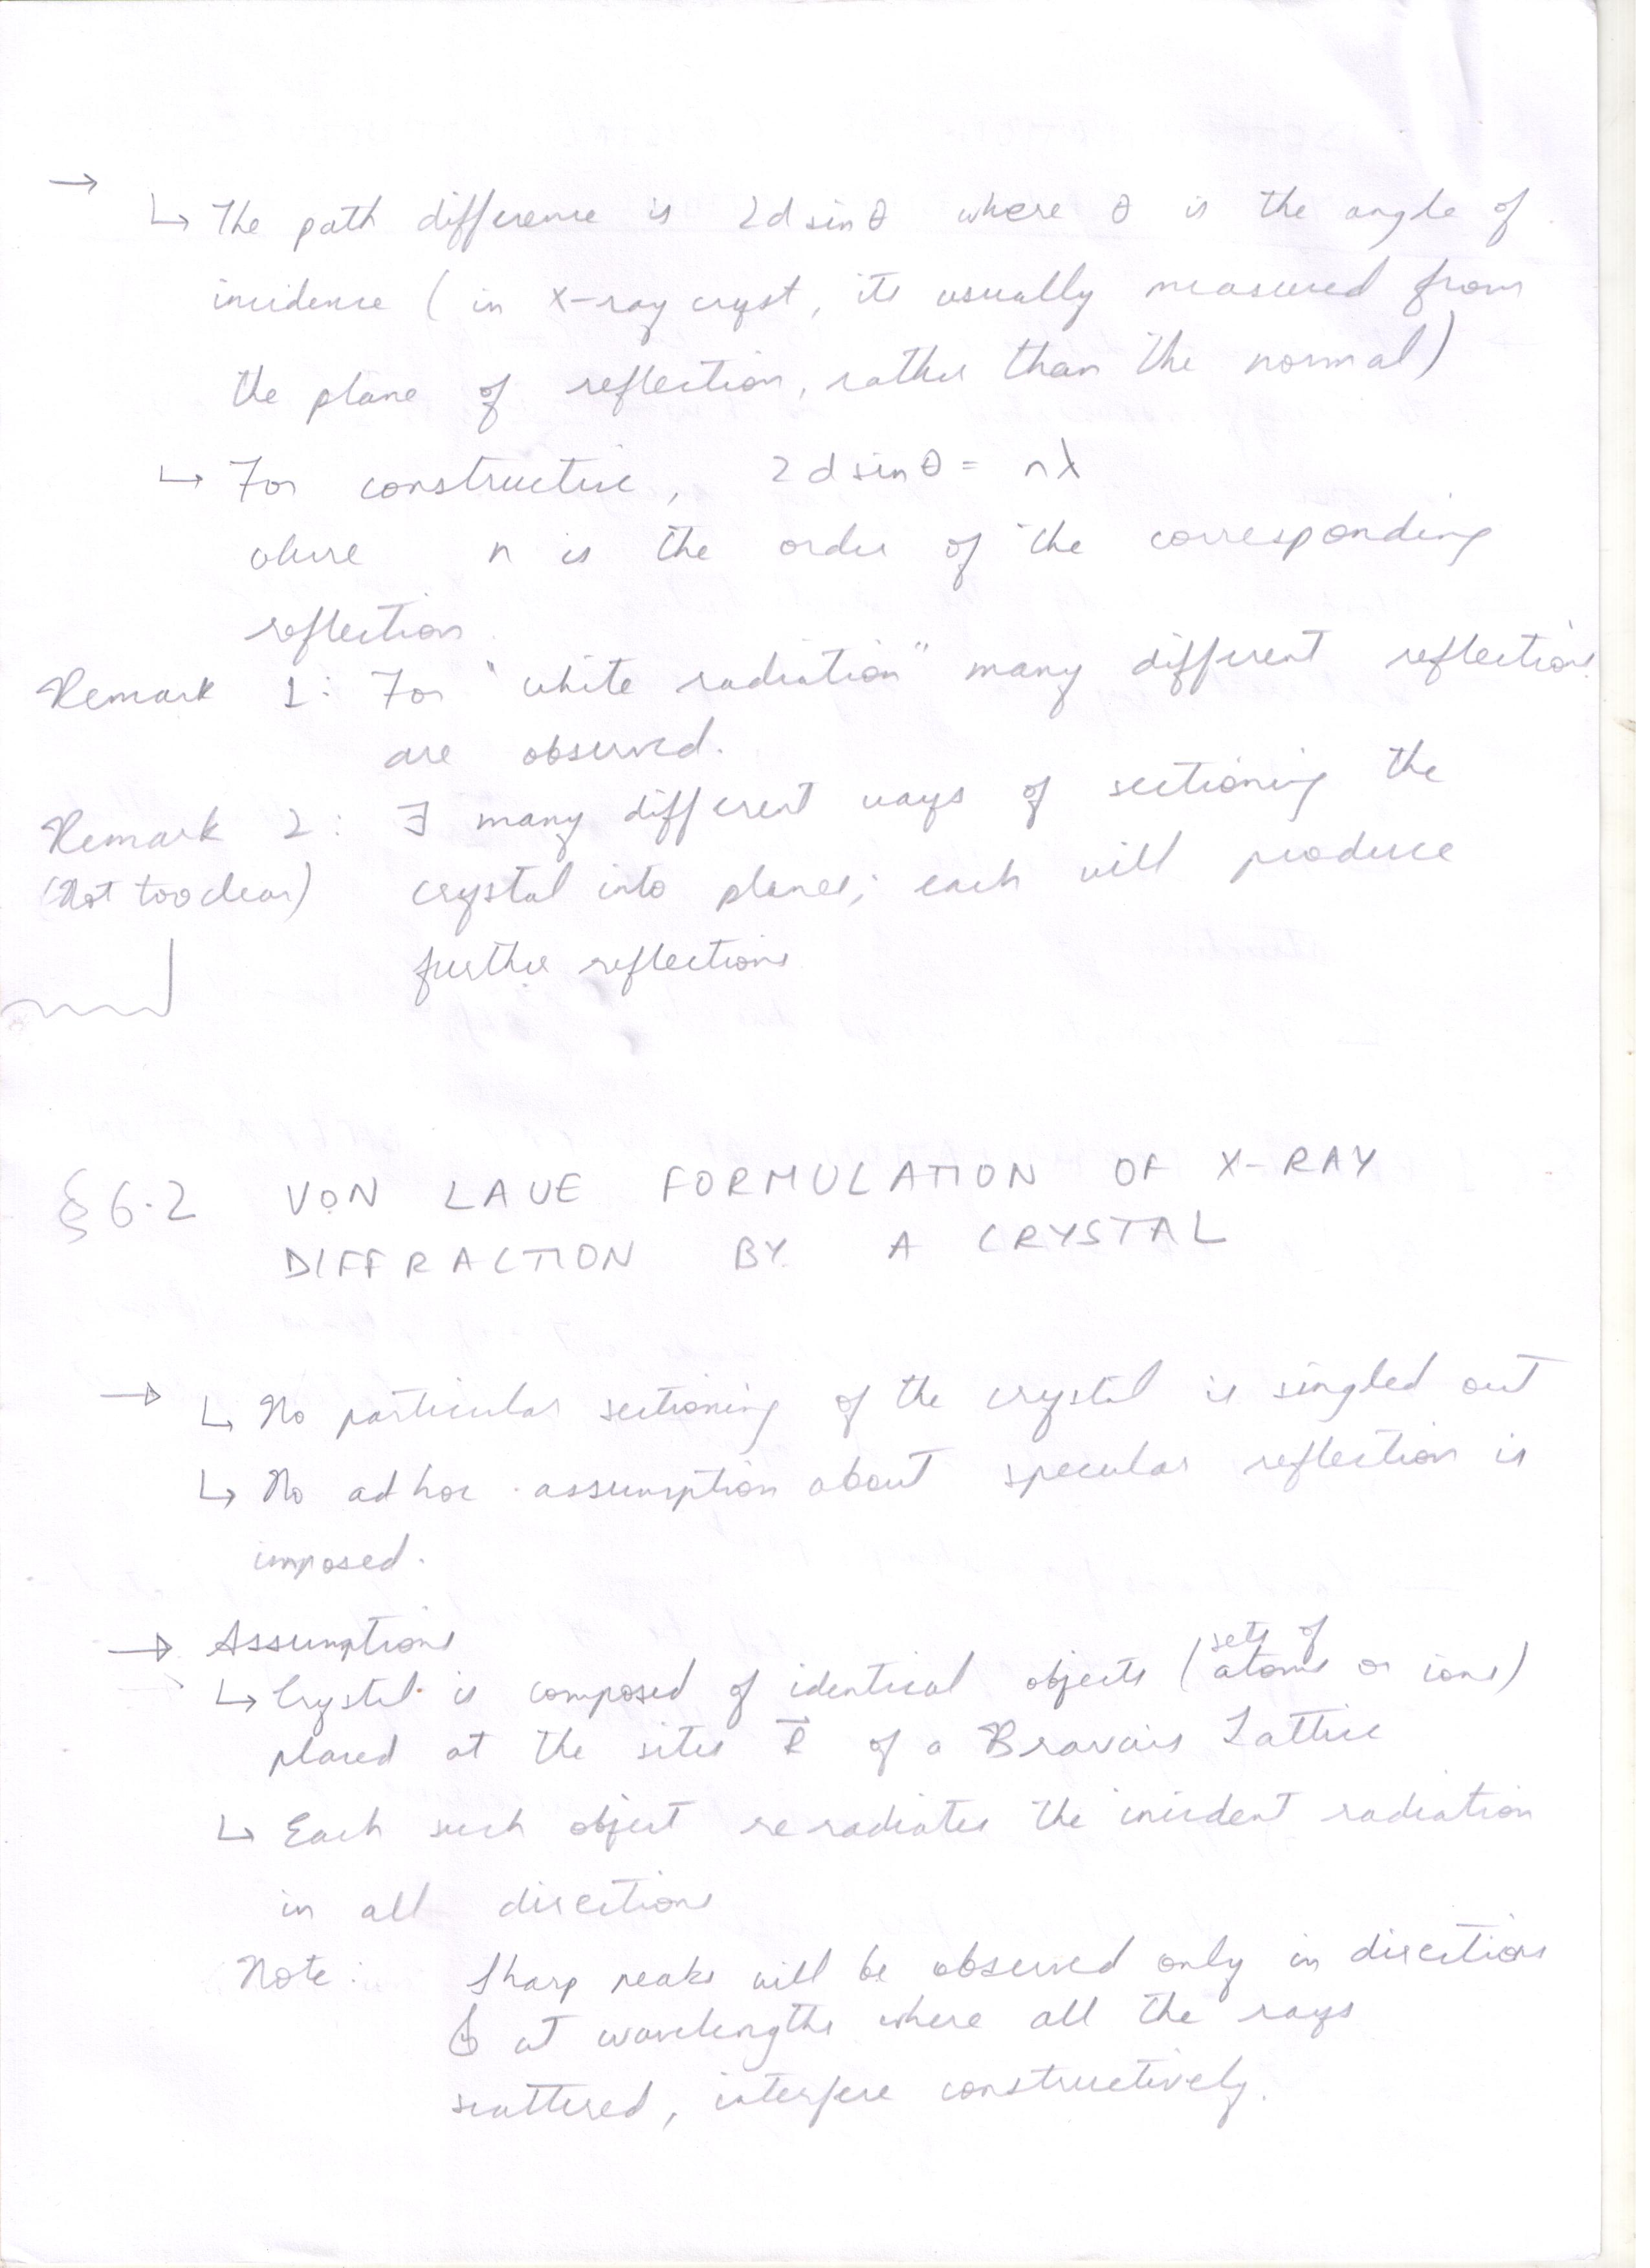 →
↳ The path difference is 2d sinθ where θ is the angle of
incidence ( in X-ray cryst, its usually measured from
the plane of reflection, rather than the normal)
↳ For constructive, 2d sinθ = nλ
where n is the order of the corresponding
reflection
Remark 1: For "white radiation" many different reflections
are observed.
Remark 2: ∃ many different ways of sectioning the
(Not too clear) crystal into planes; each will produce
further reflections
§ 6.2 VON LAUE FORMULATION OF X-RAY
DIFFRACTION BY A CRYSTAL
→ ↳ No particular sectioning of the crystal is singled out
↳ No ad hoc assumption about specular reflection is
imposed.
→ Assumptions
↳ Crystal is composed of identical objects (sets of atoms or ions)
placed at the sites R⃗ of a Bravais Lattice
↳ Each such object reradiates the incident radiation
in all directions
Note: Sharp peaks will be observed only in directions
& at wavelengths where all the rays
scattered, interfere constructively.